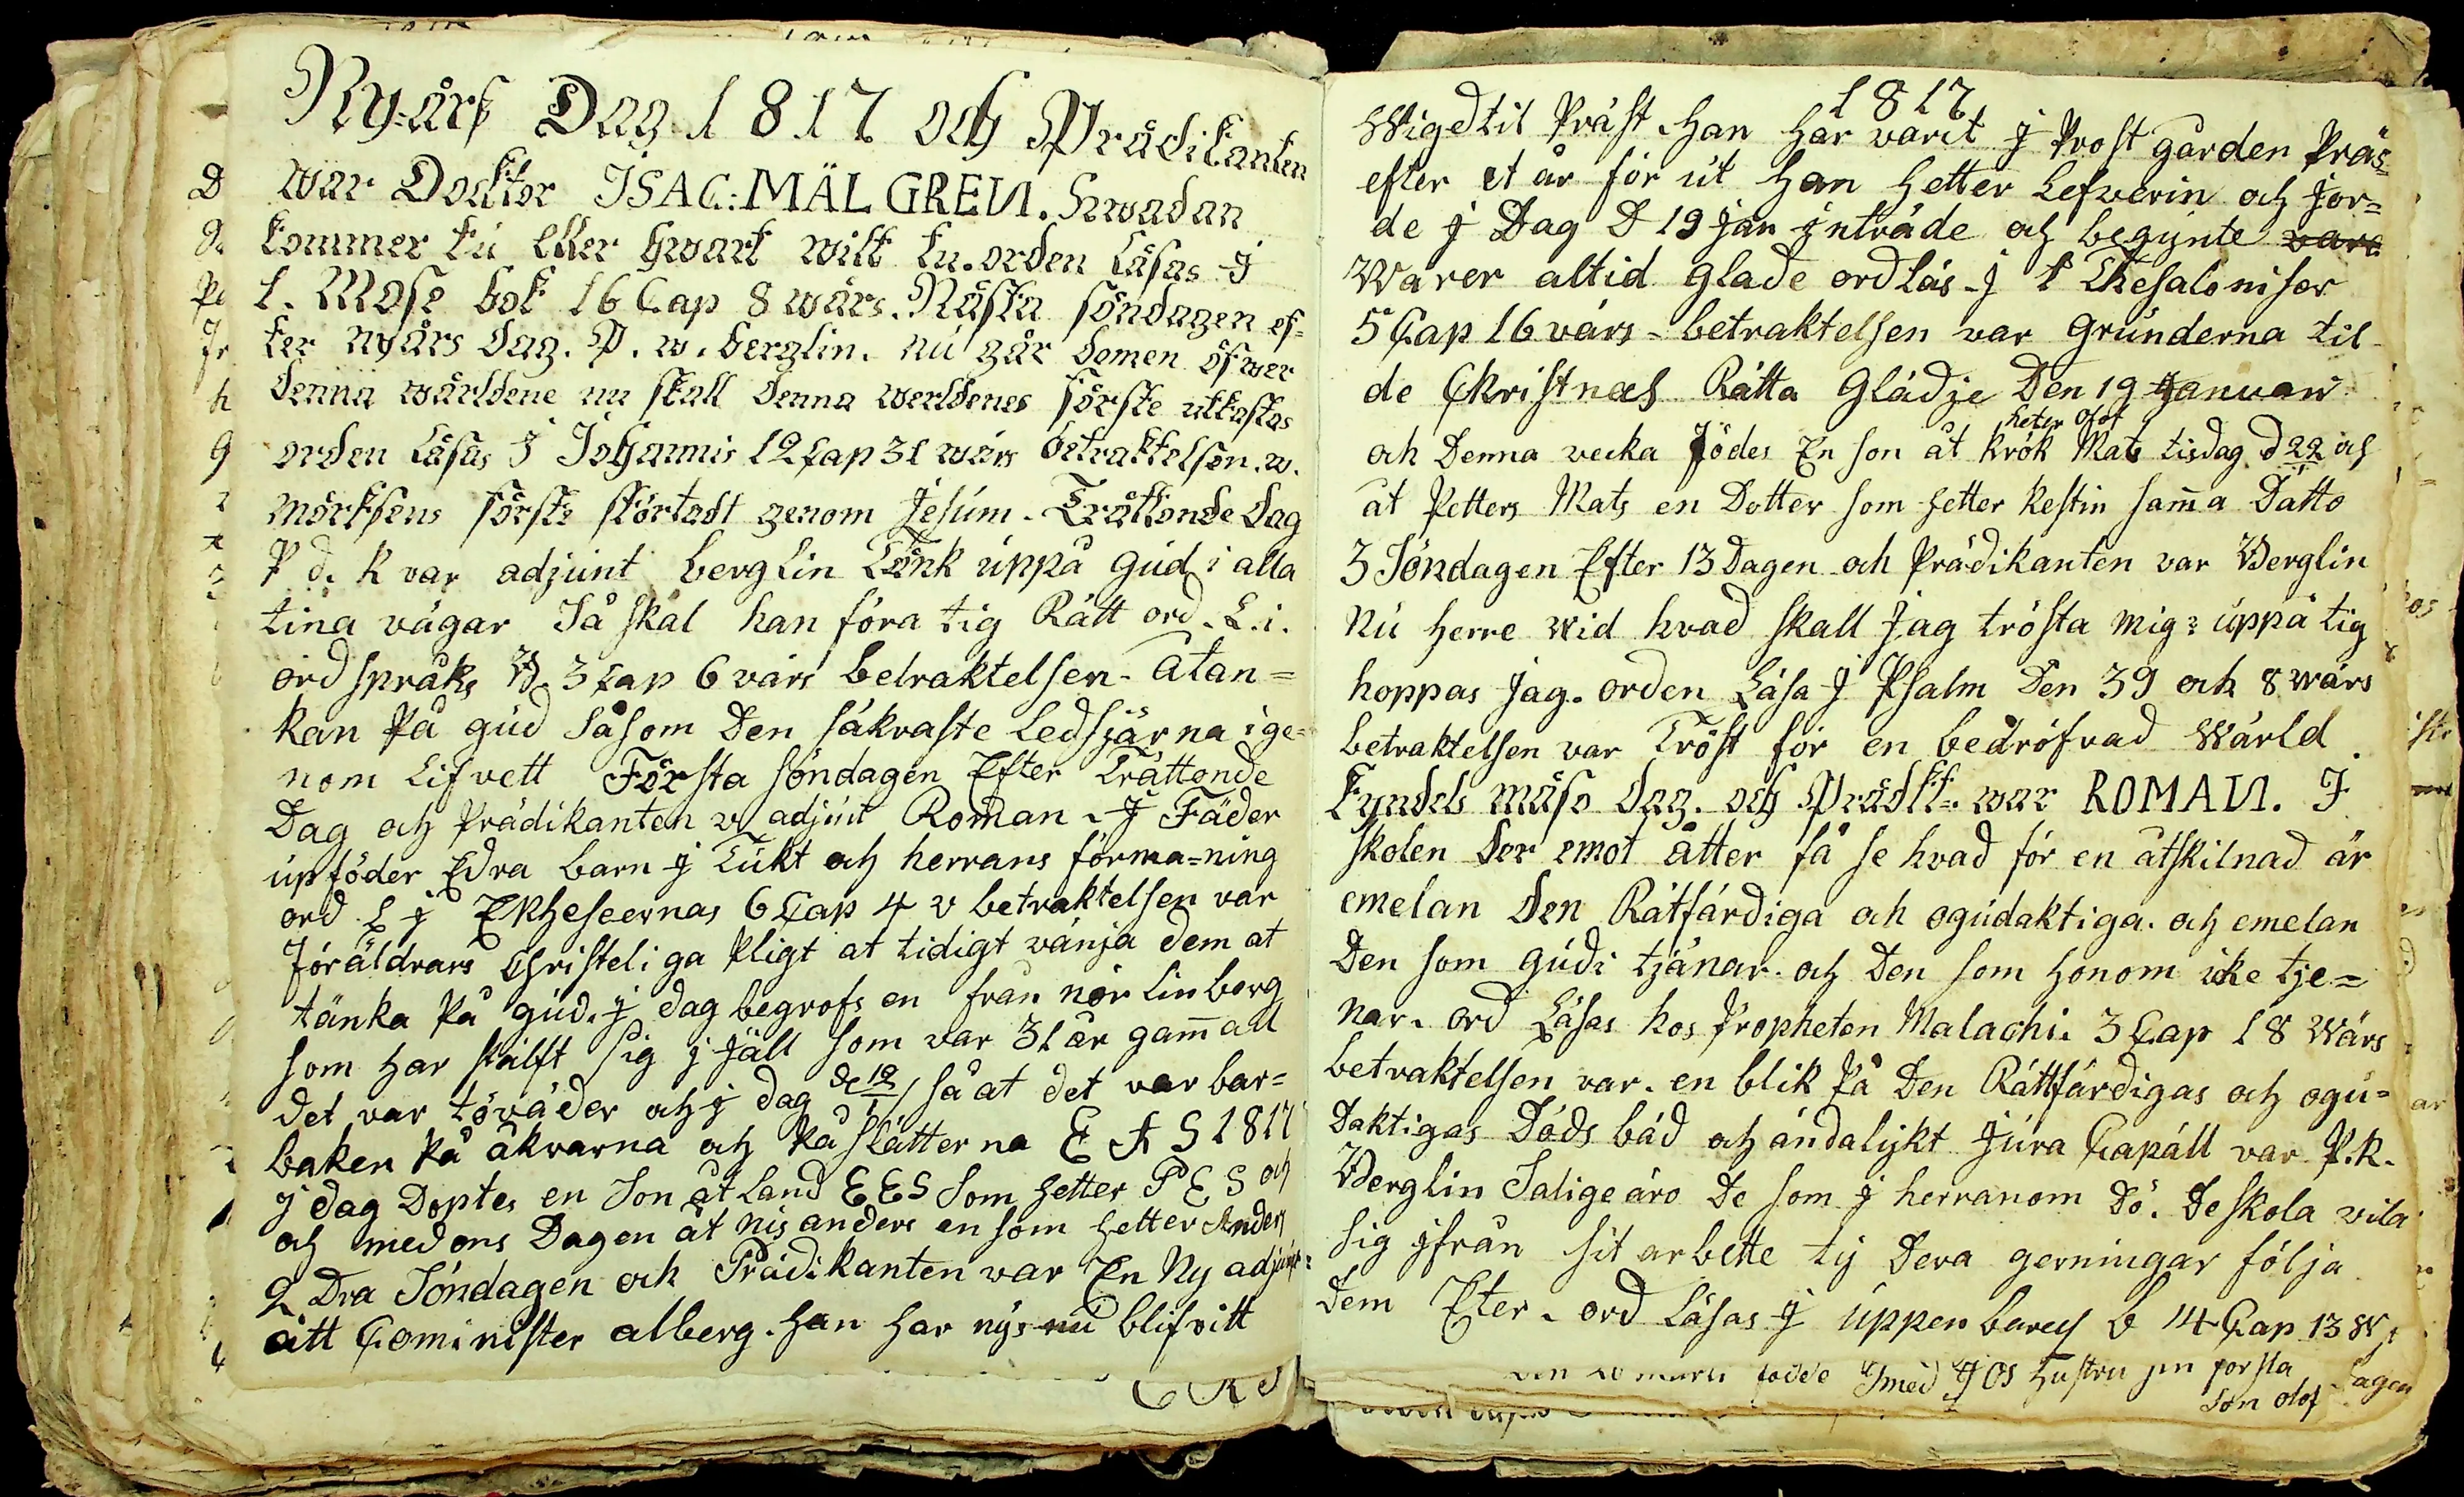 Ny-års Dag 1817 och Prädikanten
war Docktor ISAC: MÄLGREN. Hwadan
kommer tu eller hwart wilt tu. orden Läsas J
1. Mose bok 16 Cap 8 wärs. Nästa söndagen ef=
ter nyårs dag. P. w. berglin. nu går domen öfwer
denna wärldene nu skall denna werldenes förste utkastas
orden Läsas J Johannis 12 Cap 31 wärs betraktelsen. w.
mörksens förste störtadt genom Jesum. Trättonde dag
P d. k var adjunt berglin Tänk uppå gud i alla
tina vägar Så skal han föra tig Rätt ord. L. i.
ordspråks B. 3 Cap 6 värs betraktelsen. Atan=
kan På gud såsom Den säkraste Ledstjärna ige=
nom Lifvett Första söndagen Efter Trättonde
Dag och Prädikanten v adjunt Roman. J Fäder
upföder Edra barn j Tukt och herrans förma=ning
ord L j Ephesernas 6 Cap 4 v betraktelsen var
föräldrars Christeliga Pligt at tidigt vänja dem at
tänka På gud. j dag begrofs en från nör Linberg
som har stälft sig j fjäll som var 31 år gammall
det var töväder och j dag d 12/1 så at det var bar=
baken På åkrarna och På slätterna E A S 1817
j dag Doptes en Son åt Land EES Som hetter P E S och
och medons Dagen åt nis anders en som hetter Anders
2 Dra Söndagen och Prädikanten var En Ny adjunt
ått Cominister alberg. han har nys nu blifvitt
1817
Wigd til Präst. han har varit j Prostgården Präs=
efter et år för ut han hetter Lefverin och jor=
de j Dag D 19 jan jnträde och begynte vara
Warer altid glade ord Läs. j 1 Thesaloniser
5 Cap 16 värs = betraktelsen var grunderna til
de Christnas Rätta Glädje Den 19 Januari
heter olof
och Denna vecka födes En son åt krok Mats tisdag d 22 och
åt Petters Mats en Dotter som hetter Kestin samma Datto
3 Söndagen Efter 13 Dagen och Prädikanten var Berglin
Nu herre wid hvad skall Jag trösta mig? uppå tig
hoppas jag. orden Läsa J Psalm Den 39 och 8 wärs
betraktelsen var Tröst för en bedröfvad Wärld
Kyndels mäso dag. och Prädkt. war ROMAN. J
skolen der emot åtter få se hvad för en åtskilnad är
emelan den Rätfärdiga och ogudaktiga. och emelan
Den som gudi tjänar. och Den som honom ike tje=
nar. ord Läsas hos Propheten Malachi. 3 Cap 18 Wärs
betraktelsen var. en blik På Den Rättfärdigas och ogu=
daktigas Döds bäd och ändalykt Jura Capäll var P.k.
Berglin Salige äro De som j herranom Dö. De skola vila
sig jfrån sit arbette ty Dera gerningar följa
Dem Efter. ord Läsas J uppenbarels b 14 Cap 13 W
födde Jmed J OS hustru sin forsta
son olof